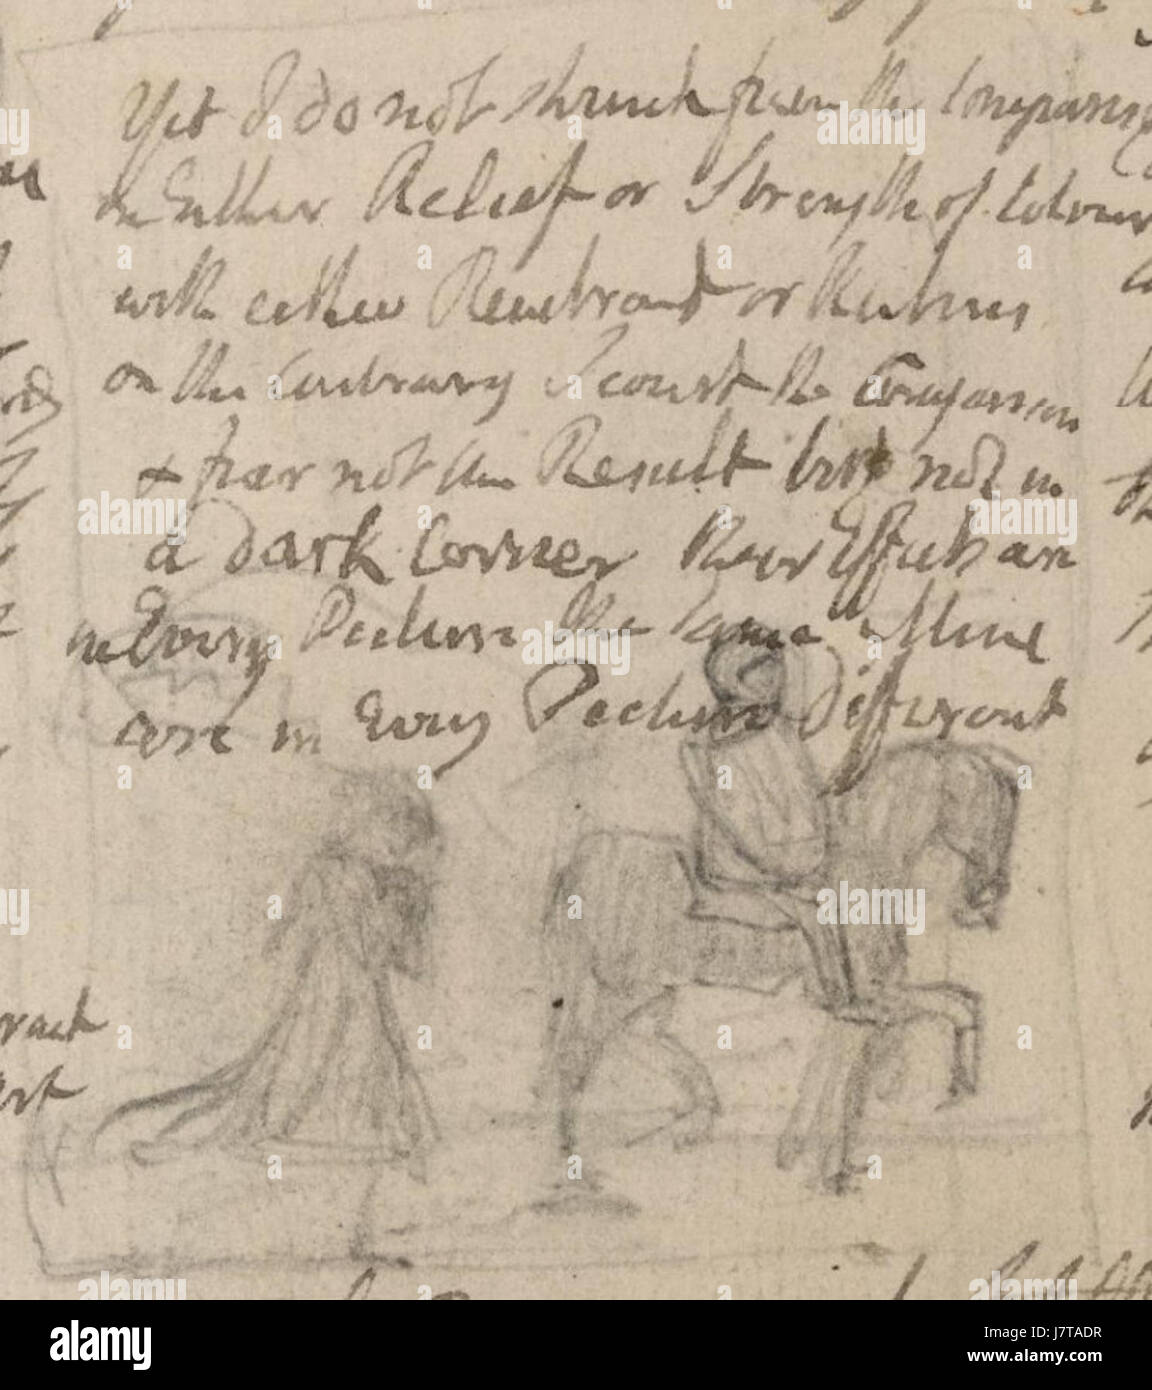 Yet I do not shrink from the Comparison
in Either Relief or Strength of Colour
with either Rembrandt or Rubens
on the Contrary I court the Comparison
& fear not the Result but not in
a dark Corner their Effects are
in Every Picture the same Mine
are in Every Picture different
alamy
Image ID: J7TADR
www.alamy.com